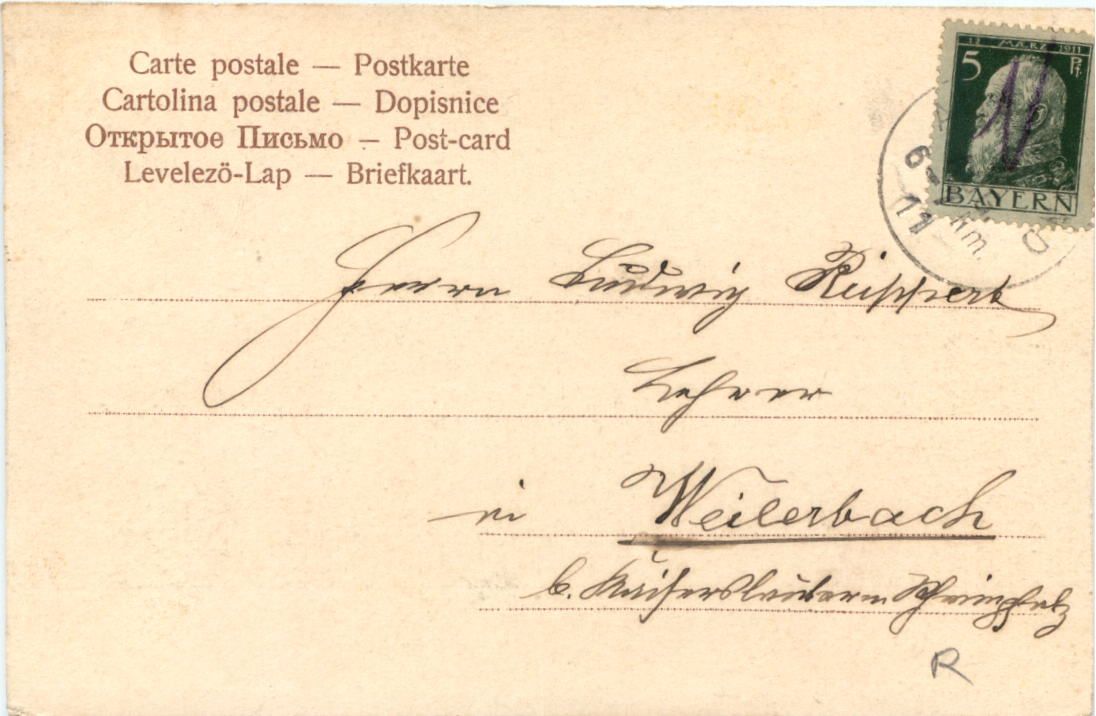 Carte postale — Postkarte
Cartolina postale — Dopisnice
Открытое Письмо — Post-card
Levelezö-Lap — Briefkaart.
12 MÆRZ 1911
5 Pf.
BAYERN
6
11
Nm.
Herrn Ludwig Reippert
Lehrer
in Weilerbach
b. Kaiserslautern Rheinpfalz
R